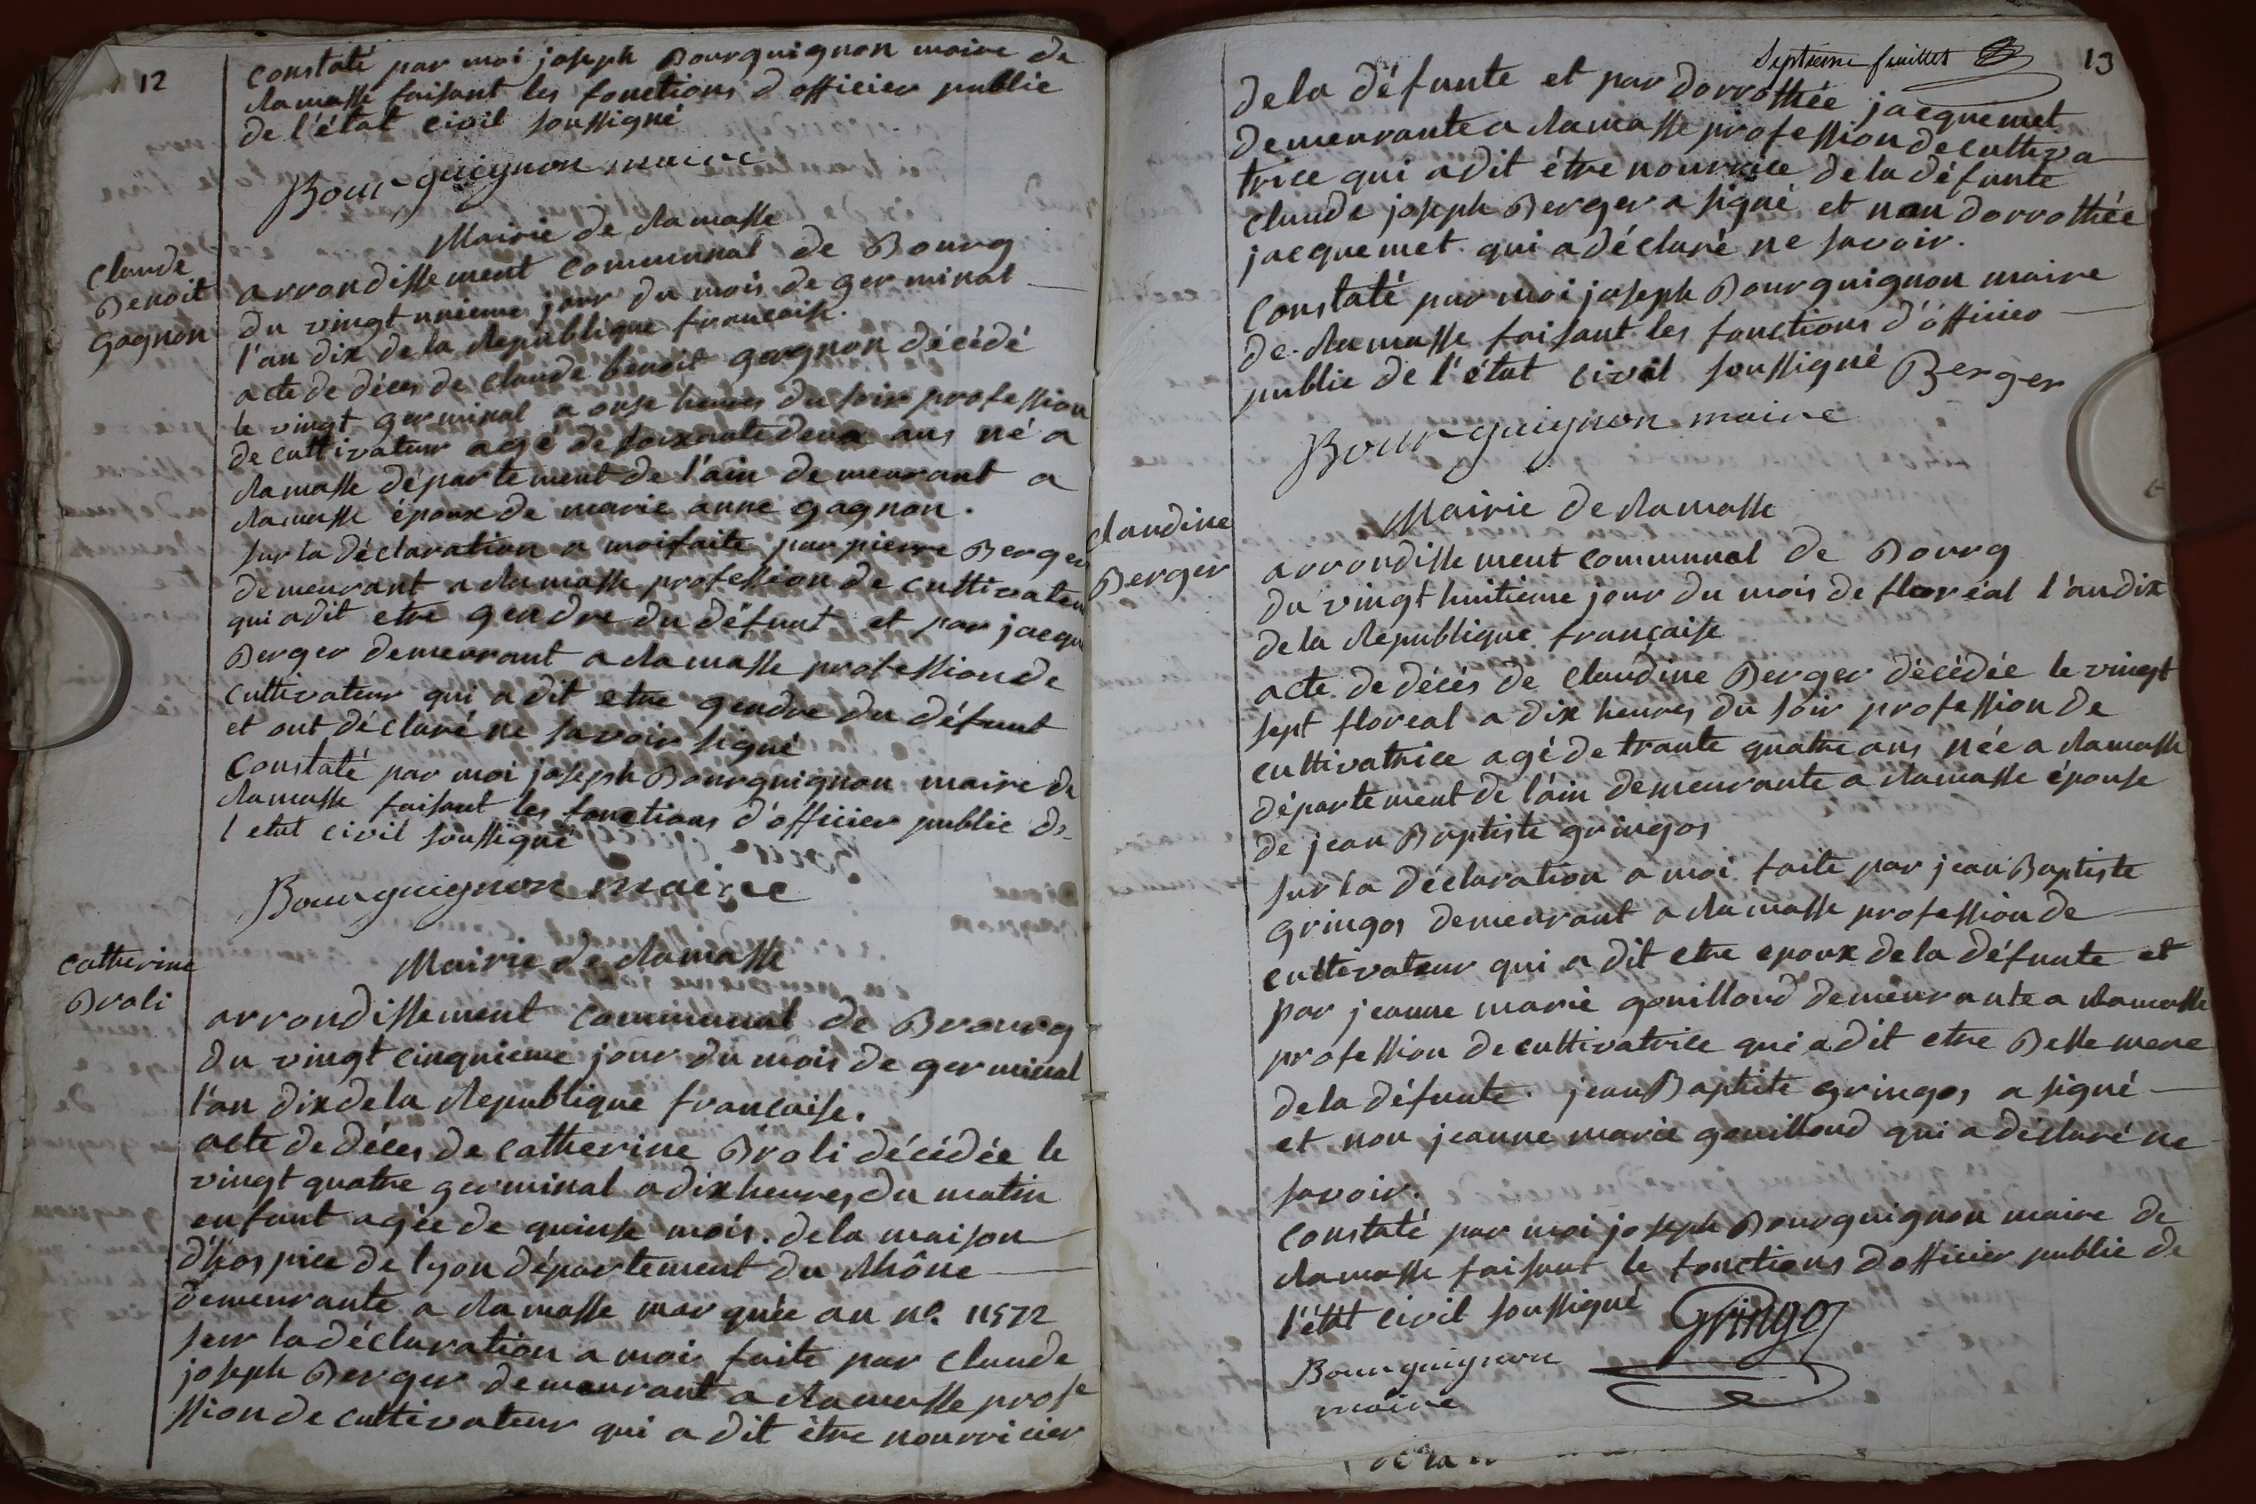 12
constaté par moi joseph Bourguignon maire de
Ramasse faisant les fonctions d officier public
de l'état civil soussigné
Bourguignon maire
Mairie de Ramasse
claude
Benoit
gagnon
arrondissement communal de Bourg
du vingt unieme jour du mois de germinal
l'an dix de la Republique francaise.
acte de déces de claude benoit gagnon décédé
le vingt germinal a onse heures du soir profession
de cultivateur agé de soixante deux ans né a
Ramasse département de l'ain demeurant a
Ramasse époux de marie anne gagnon.
sur la déclaration a moi faite par pierre Berger
demeurant a Ramasse profession de cultivateu
qui a dit etre gendre du défunt et par jacque
Berger demeurant a Ramasse profession de
cultivateur qui a dit etre gendre du défunt
et ont déclaré ne savoir signé
constaté par moi joseph Bourguignon maire de
Ramasse faisant les fonctions d'officier public de
l etat civil soussigné
Bourguignon maire
catherine
Broli
Mairie de Ramasse
arrondissement communal de Brourg
du vingt cinquieme jour du mois de germinal
l'an dix de la Republique francaise.
acte de déces de catherine Broli décédée le
vingt quatre germinal a dix heures du matin
enfant agée de quinse mois. de la maison
d'hospice de lyon département du Rhône
demeurante a Ramasse marquée au n°. 11572
sur la déclaration a moi faite par claude
joseph Berger demeurant a Ramasse profe
ssion de cultivateur qui a dit être nourricier
septieme feuillet
13
de la défunte et par dorrothée jacquemet
demeurante a Ramasse profession de cultiva
trice qui a dit être nourrice de la défunte
claude joseph Berger a signé et non dorrothée
jacquemet qui a déclaré ne savoir.
constaté par moi joseph Bourguignon maire
de Ramasse faisant les fonctions d'officier
public de l'état civil soussigné Berger
Bourguignon maire
Mairie de Ramasse
claudine
Berger
arrondissement communal de Bourg
du vingt huitieme jour du mois de floréal l'an dix
de la Republique française
acte de décés de claudine Berger décédée le vingt
sept floreal a dix heures du soir profession de
cultivatrice agé de trante quatre ans née a Ramasse
département de l'ain demeurante a Ramasse épouse
de jean Baptiste gringos
sur la déclaration a moi faite par jean Baptiste
gringos demeurant a Ramasse profession de
cultivateur qui a dit etre epoux de la défunte et
par jeanne marie gouilloud demeurante a Ramasse
profession de cultivatrice qui a dit etre Belle mere
de la défunte. jean Baptiste gringos a signé
et non jeanne marie gouilloud qui a déclaré ne
savoir.
constaté par moi joseph Bourguignon maire de
Ramasse faisant le fonctions d officier public de
l'état civil soussigné Gringos
Bourguignon
maire